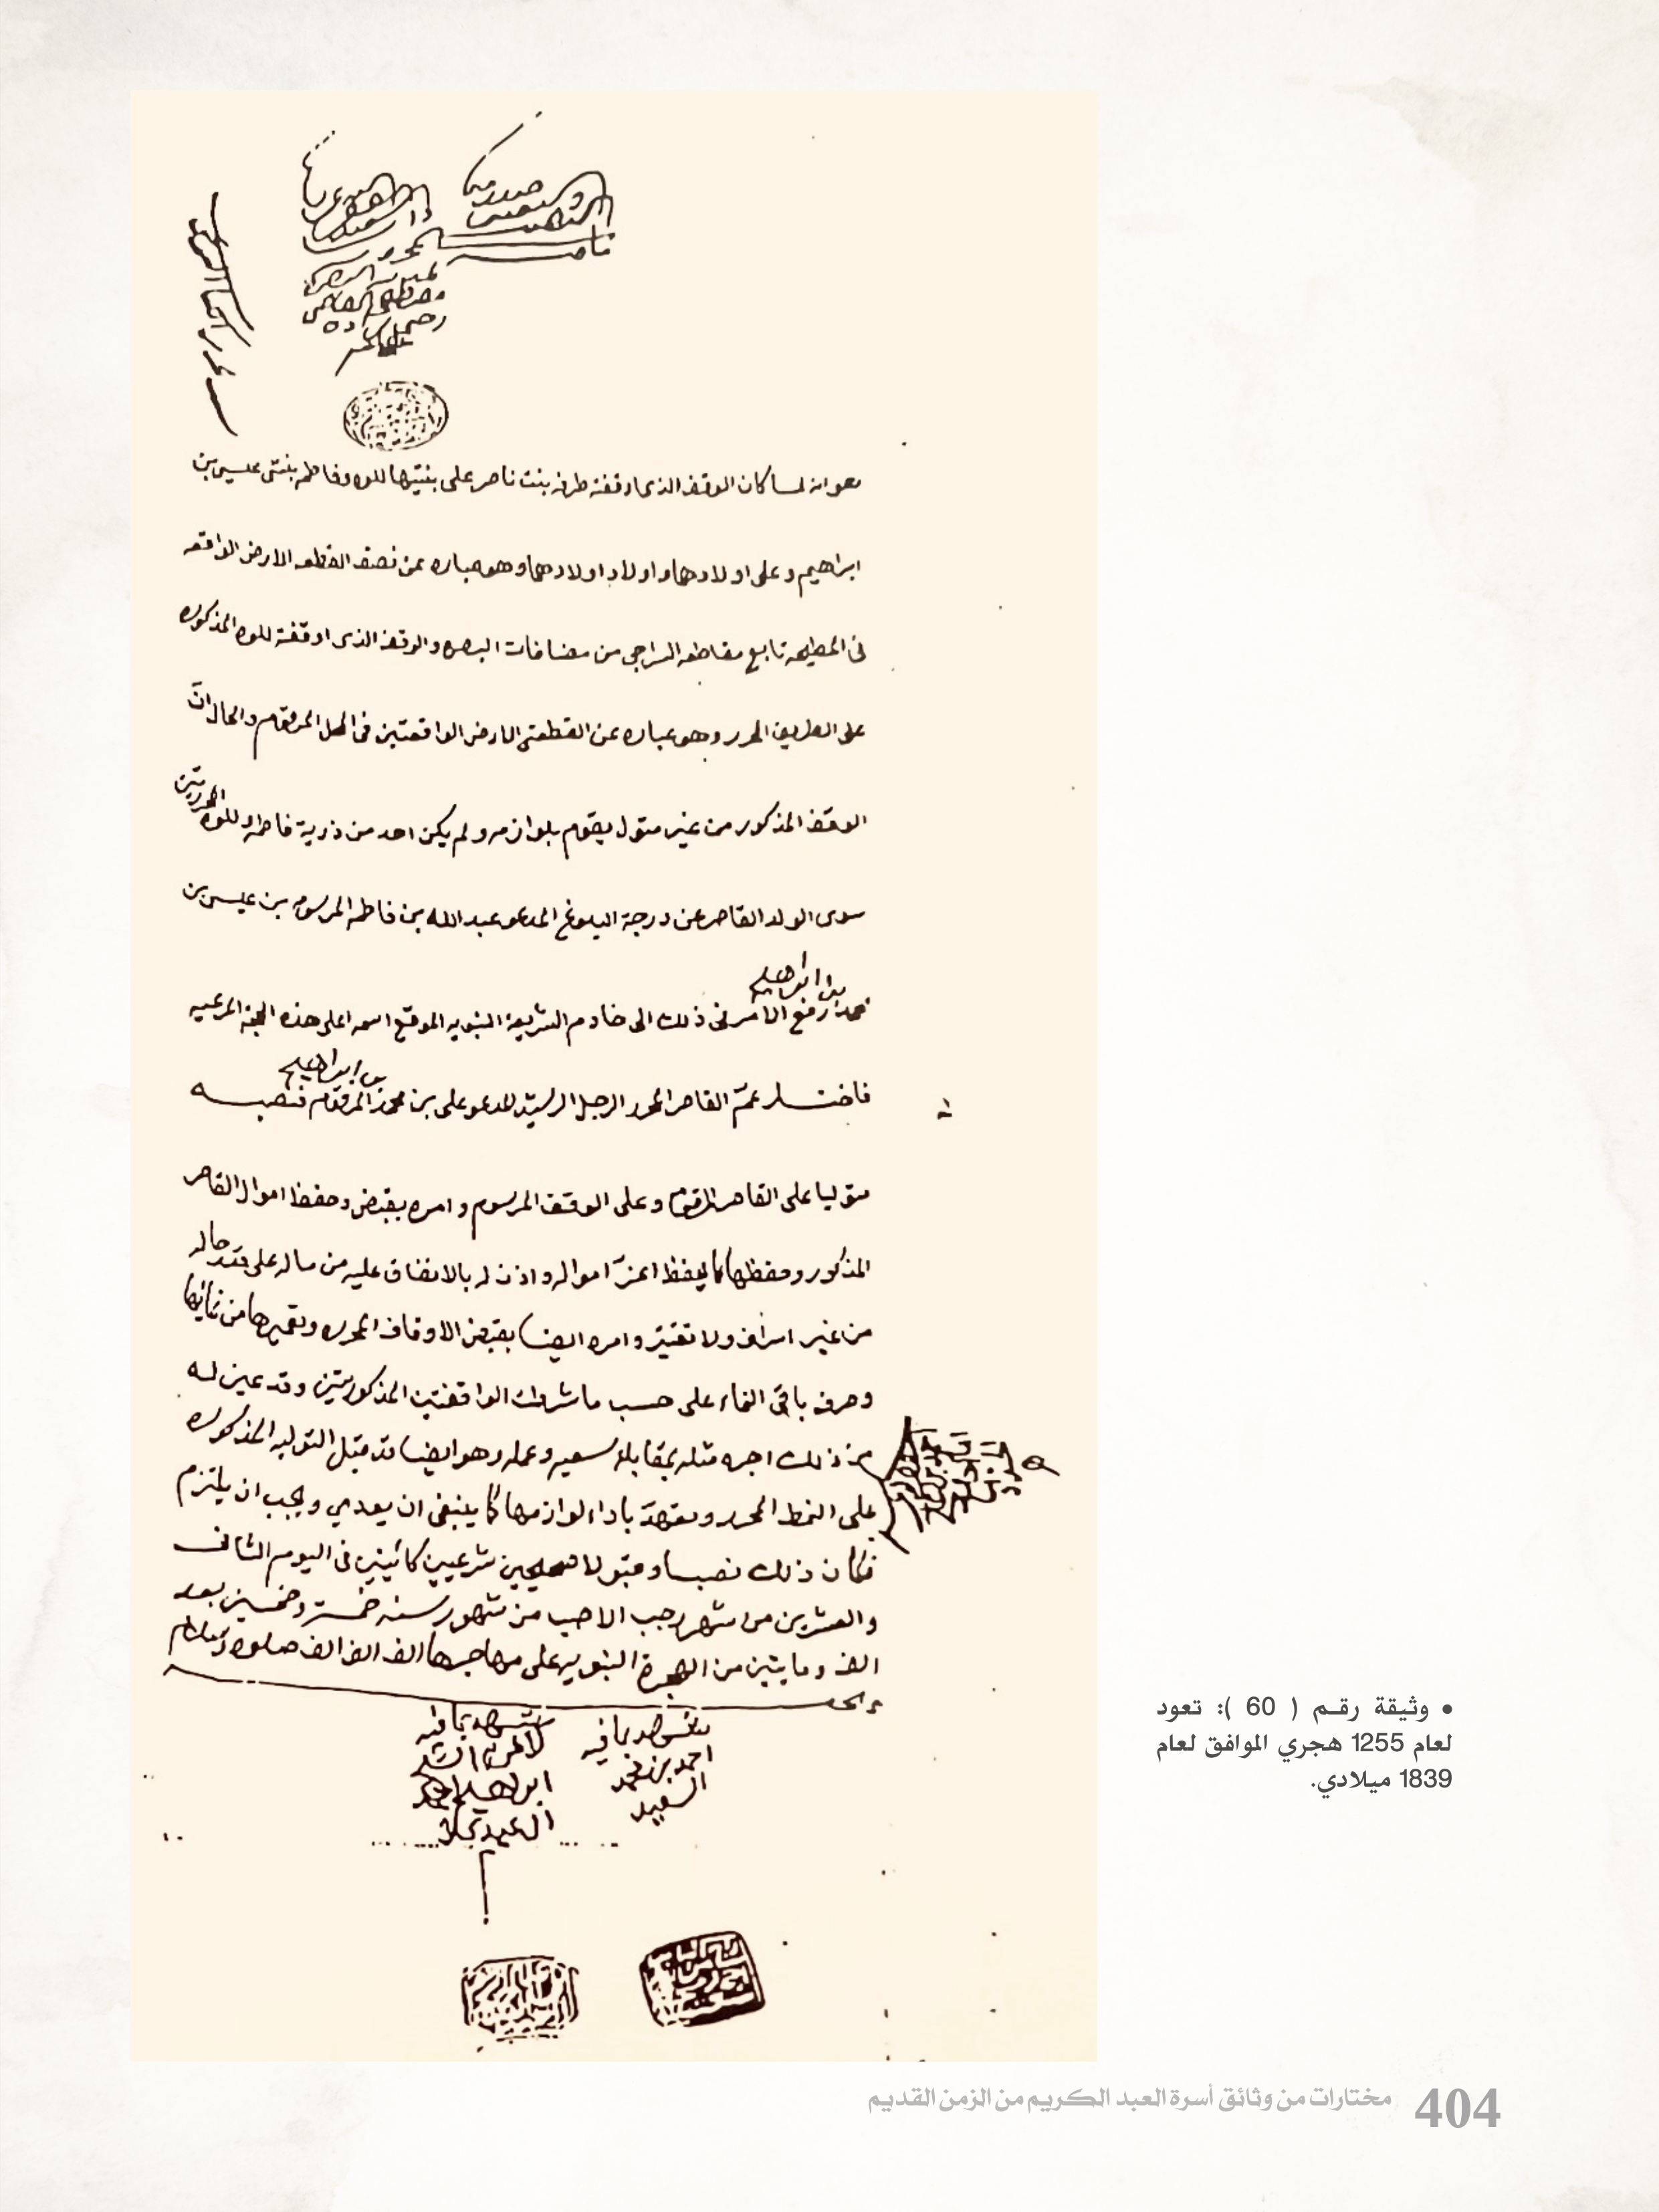 هو انه لما كان الوقف الذي اوقفته طرفه بنت ناصر على بنتيها للوه وفاطمه بنتي عيسى بن
ابراهيم وعلى اولادهما واولاد اولادهما وهو عباره عن نصف القطعه الارض الواقعه
في المطيحه تابع مقاطعه السراجي من مضافات البصره والوقف الذي اوقفته للوه المذكوره
على الطريق المحرر وهو عباره عن القطعتي الارض الواقعتين في المحل المرقوم والحال انّ
الوقف المذكور من غير متول يقوم بلوازمه ولم يكن احد من ذرية فاطمه وللوه المحررتين
سوى الولد القاصر عن درجة البلوغ المدعو عبدالله بن فاطمه المرسومه بن عيسى بن
بن ابراهيم
محمد رفع الامر في ذلك الى خادم الشريعة النبويه الموقع اسمه اعلى هذه الحجة المرعيه
بن ابراهيم
فاختار عمّ القاصر المحرر الرجل الرشيد المدعو علي بن محمد المرقوم فنصبه
متوليا على القاصر المرقوم وعلى الوقف المرسوم وامره بقبض وحفظ اموال القاصر
المذكور وحفظها كما يحفظ اعزّ امواله واذن له بالانفاق عليه من ماله على قدر حاله
من غير اسراف ولا تقتير وامره ايضا بقبض الاوقاف المحرره وتعميرها من نمائها
وصرف باقي النماء على حسب ما شرطت الواقفتين المذكورتين وقد عين له
عن ذلك اجره مثله بمقابلة سعيه وعمله وهو ايضا قد قبل التوليه المذكوره
على النمط المحرر وتعهدّ باداء لوازمها كما ينبغي ان يعدي ويجب ان يلتزم
فكان ذلك نصبا وقبولا صحيحين شرعيين كائنين في اليوم الثاني
والعشرين من شهر رجب الاصب من شهور سنه خمسة وخمسين بعد
الف ومايتين من الهجرة النبويه على مهاجرها الف الف الف صلوة وسلام
شهد بما فيه
احمد بن محمد
السعيد
شهد بما فيه
ابراهيم
• وثيقة رقم ( 60 ): تعود
لعام 1255 هجري الموافق لعام
1839 ميلادي.
404 مختارات من وثائق أسرة العبد الكريم من الزمن القديم